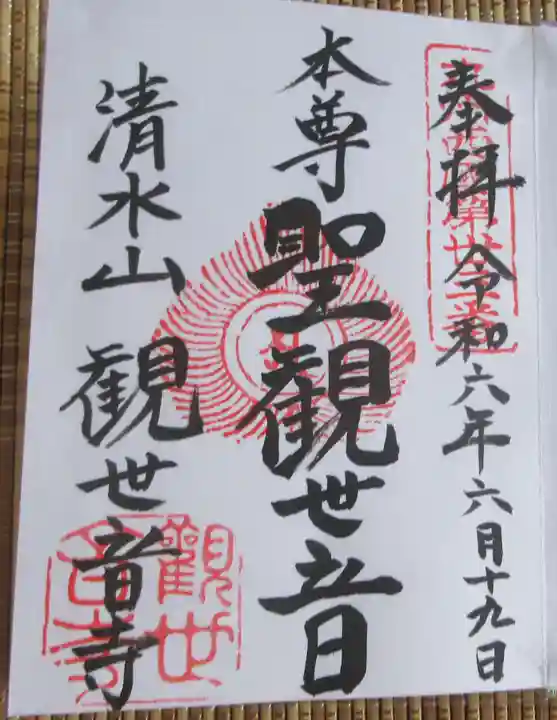 奉拝
令和六年六月十九日
本尊
聖観世音
清水山
観世音寺
觀世
音寺